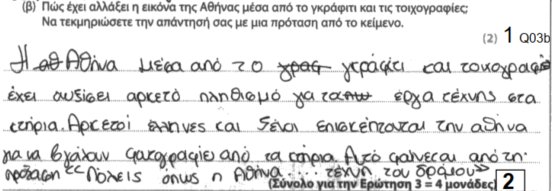 (β) Πώς έχει αλλάξει η εικόνα της Αθήνας μέσα από το γκράφιτι και τις τοιχογραφίες;
Να τεκμηριώσετε την απάντησή σας με μια πρόταση από το κείμενο.
(2) 1 Q03b
Η Αθήνα μέσα από το γκράφιτι και τοιχογραφία
έχει αυξίσει αρκετό πληθισμό για έργα τέχνης στα
κτήρια. Αρκετοί έλληνες και ξένοι επισκέπτονται την αθήνα
για να βγάλουν φωτογραφίες από τα κτήρια. Αυτό φαίνεται από τη
πρόταση “Πόλεις όπως η Αθήνα... τέχνη του δρόμου»
(Σύνολο για την Ερώτηση 3 = 4 μονάδες) 2